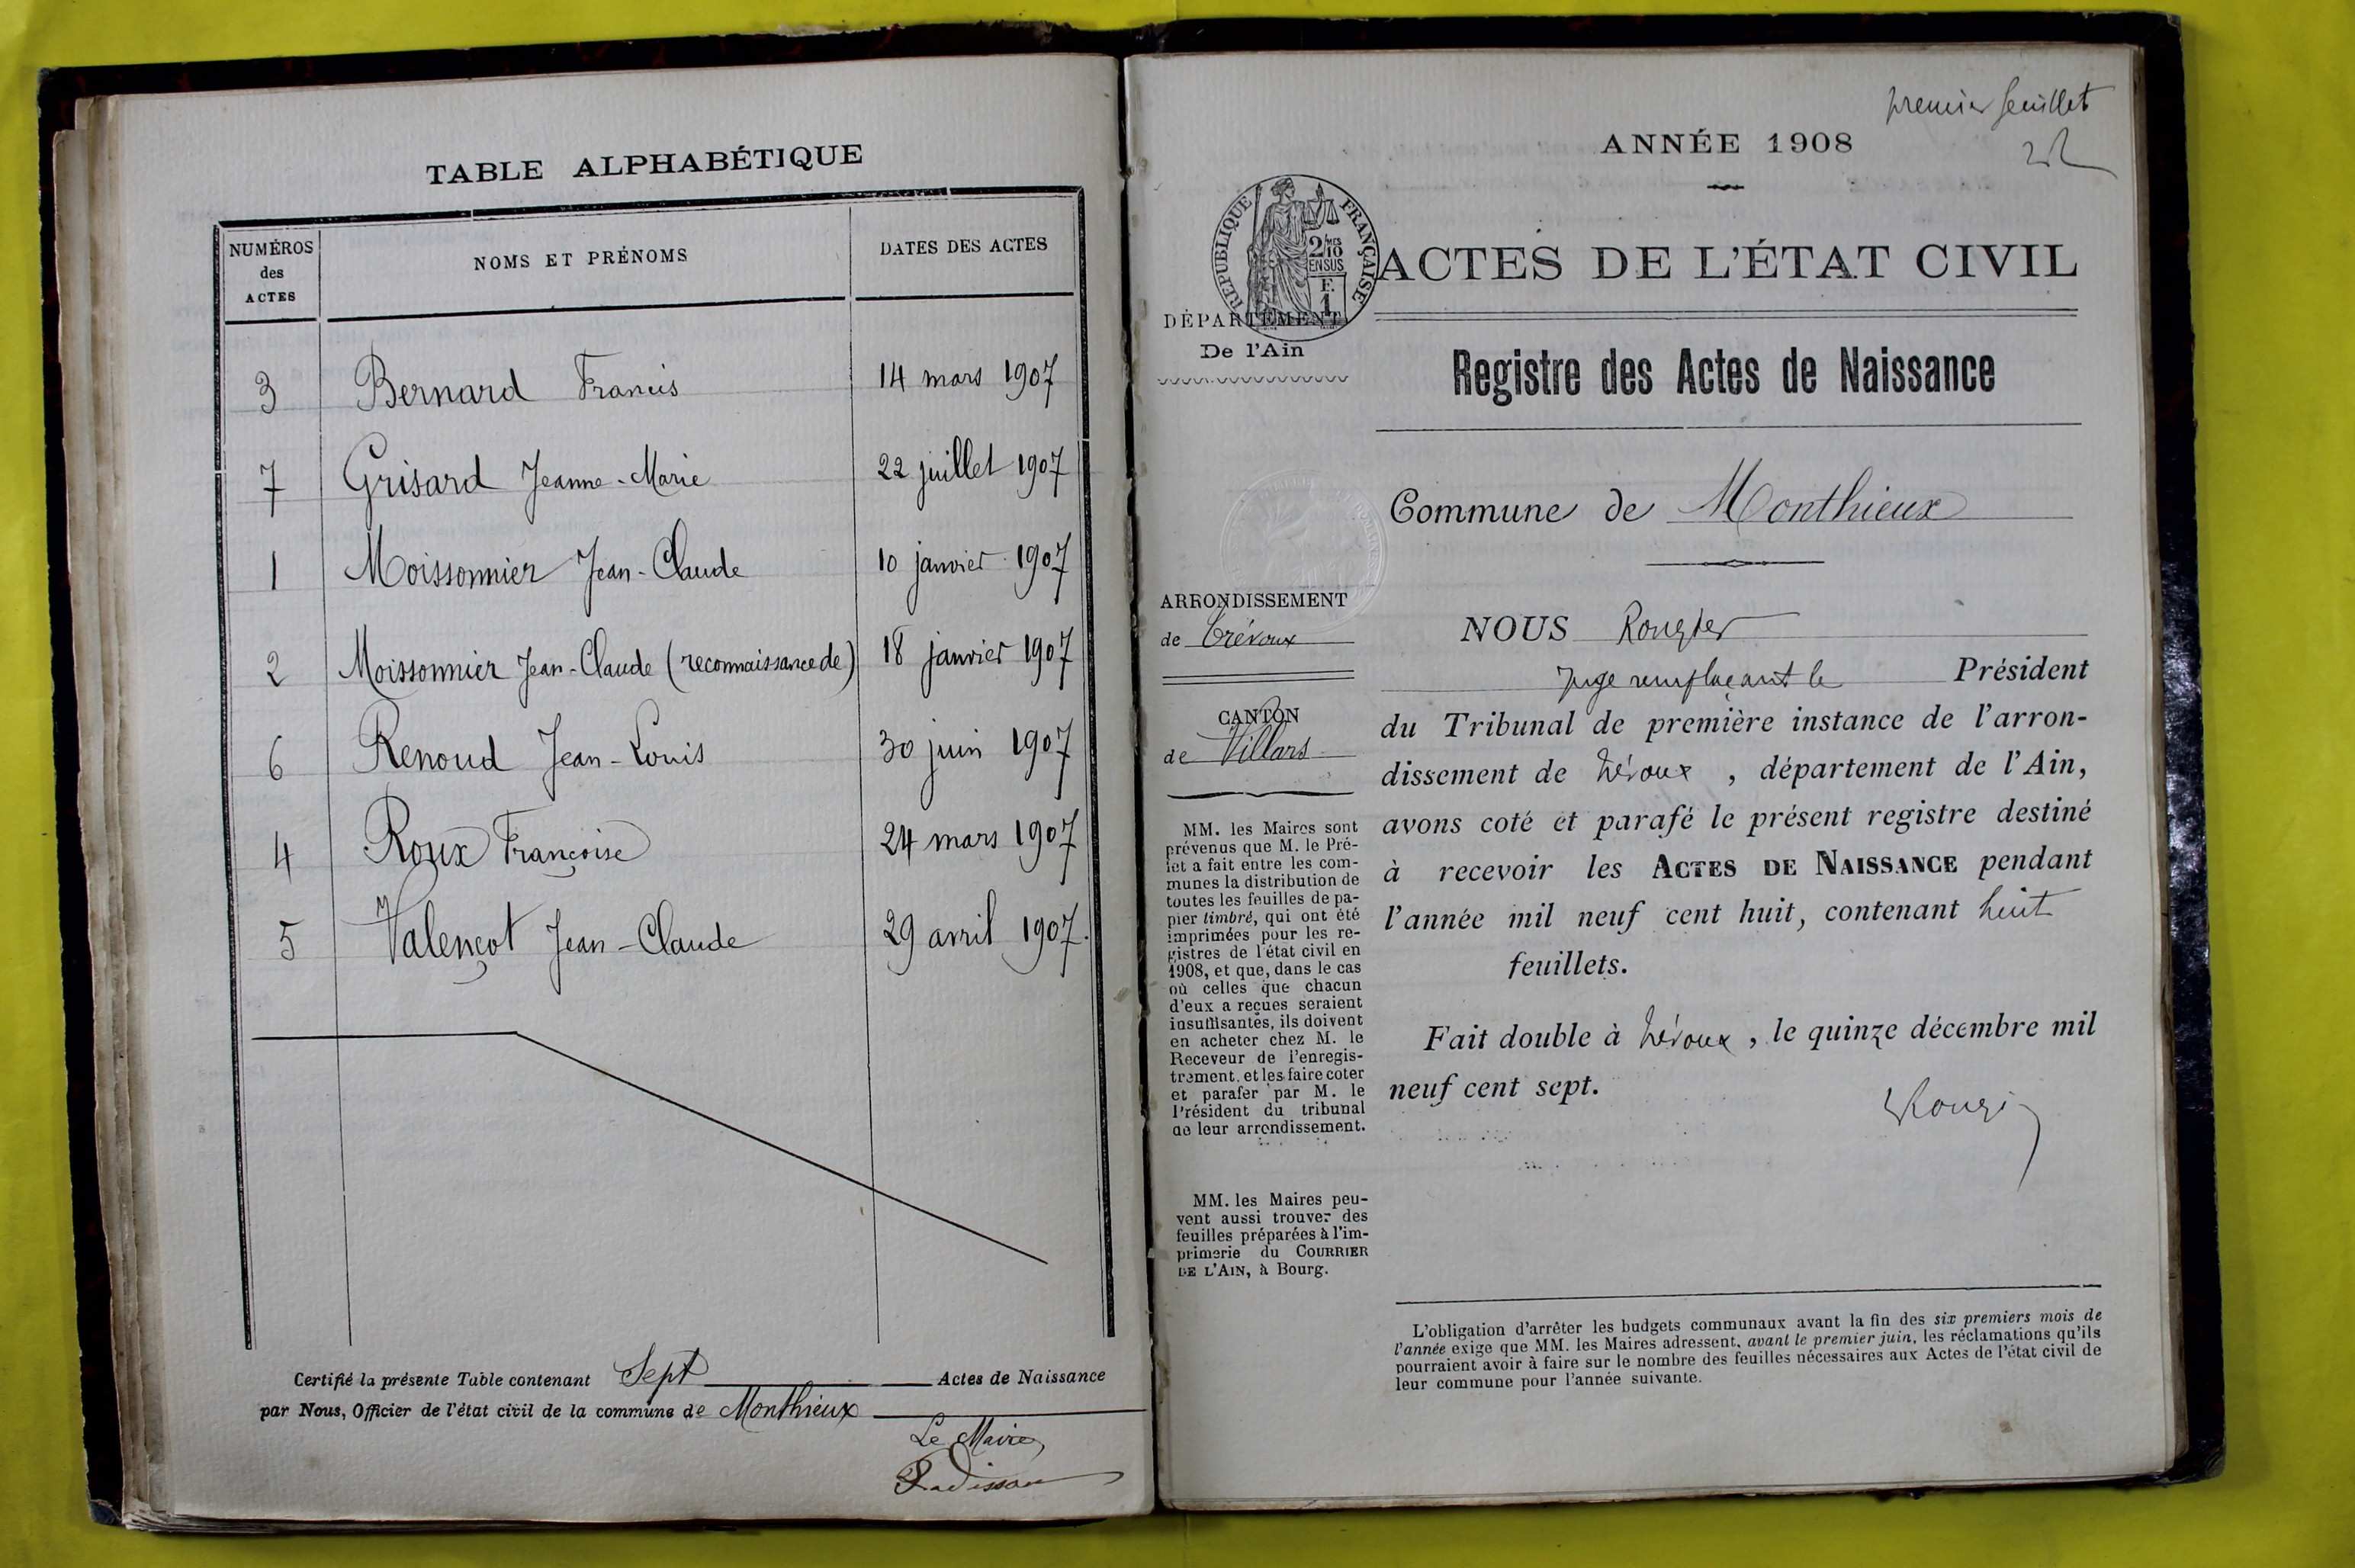 TABLE ALPHABÉTIQUE
NUMÉROS des ACTES | NOMS ET PRÉNOMS | DATES DES ACTES
3 | Bernard Francis | 14 mars 1907
7 | Grisard Jeanne-Marie | 22 juillet 1907
1 | Moissonnier Jean-Claude | 10 janvier 1907
2 | Moissonnier Jean-Claude (reconnaissance de) | 18 janvier 1907
6 | Renoud Jean-Louis | 30 juin 1907
4 | Roux Françoise | 24 mars 1907
5 | Valençot Jean-Claude | 29 avril 1907.
Certifié la présente Table contenant Sept Actes de Naissance
par Nous, Officier de l'état civil de la commune de Monthieux
Le Maire
Radisson
premier feuillet
ANNÉE 1908
RÉPUBLIQUE FRANÇAISE
2/10MES
EN SUS
F.
1
ACTES DE L'ÉTAT CIVIL
DÉPARTEMENT
De l'Ain
Registre des Actes de Naissance
Commune de Monthieux
ARRONDISSEMENT
de Trévoux
CANTON
de Villars
MM. les Maires sont
prévenus que M. le Pré-
fet a fait entre les com-
munes la distribution de
toutes les feuilles de pa-
pier timbré, qui ont été
imprimées pour les re-
gistres de l'état civil en
1908, et que, dans le cas
où celles que chacun
d'eux a reçues seraient
insuffisantes, ils doivent
en acheter chez M. le
Receveur de l'enregis-
trement, et les faire coter
et parafer par M. le
Président du tribunal
de leur arrondissement.
MM. les Maires peu-
vent aussi trouver des
feuilles préparées à l'im-
primerie du COURRIER
DE L'AIN, à Bourg.
NOUS Rougier
Juge remplaçant le Président
du Tribunal de première instance de l'arron-
dissement de Trévoux, département de l'Ain,
avons coté et parafé le présent registre destiné
à recevoir les ACTES DE NAISSANCE pendant
l'année mil neuf cent huit, contenant huit
feuillets.
Fait double à Trévoux, le quinze décembre mil
neuf cent sept.
Rougier
L'obligation d'arrêter les budgets communaux avant la fin des six premiers mois de
l'année exige que MM. les Maires adressent, avant le premier juin, les réclamations qu'ils
pourraient avoir à faire sur le nombre des feuilles nécessaires aux Actes de l'état civil de
leur commune pour l'année suivante.